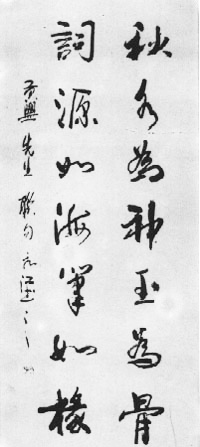 秋水為神玉為骨
詞源如海筆如椽
先生 聯句